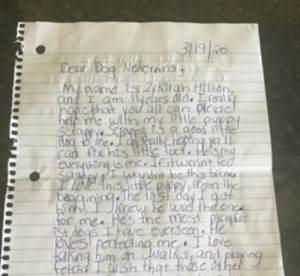 3/19/20
Dear Dog
My name is Hilton,
and I am 11 years old. I really
hope that you all can please
help me with my little puppy
Scrappy. Scrappy is a good little
dog to me. I am really hoping ya'll
can fix his little foot. He's my
everything to me. If it wasn't for
Scrappy I wouldn't be this
I love this little puppy from the
beggining. The first day I got
him, I knew he was the one
for me. He's the most playful
dogs I have ever seen. He
loves me. I love
taking him on walks, and playing
fetch. I wish that those other